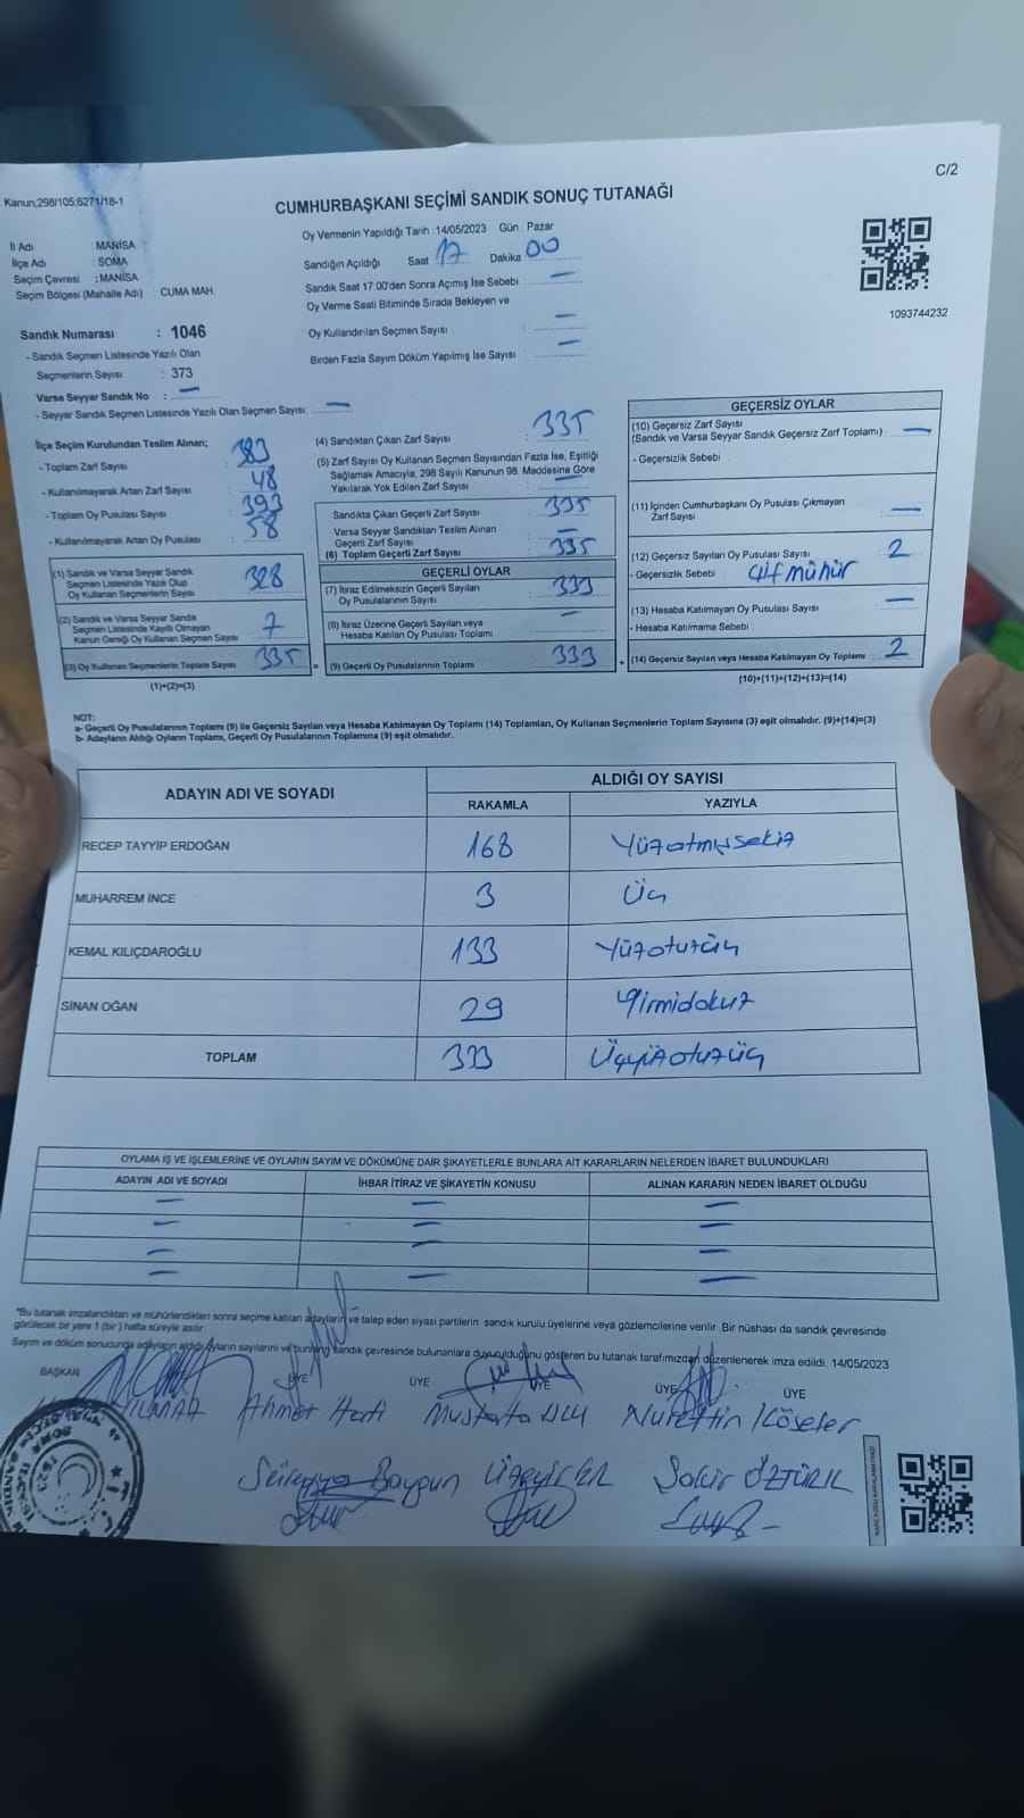 C/2
Kanun,298/105;6271/18-1
CUMHURBAŞKANI SEÇİMİ SANDIK SONUÇ TUTANAĞI
Oy Vermenin Yapıldığı Tarih :14/05/2023 Gün : Pazar
İl Adı : MANİSA
İlçe Adı : SOMA
Seçim Çevresi : MANİSA
Seçim Bölgesi (Mahalle Adı) CUMA MAH.
Sandık Numarası : 1046
- Sandık Seçmen Listesinde Yazılı Olan
Seçmenlerin Sayısı : 373
Varsa Seyyar Sandık No : —
- Seyyar Sandık Seçmen Listesinde Yazılı Olan Seçmen Sayısı : —
Sandığın Açıldığı Saat 17 Dakika 00
Sandık Saat 17.00'den Sonra Açılmış İse Sebebi —
Oy Verme Saati Bitiminde Sırada Bekleyen ve
Oy Kullandırılan Seçmen Sayısı —
Birden Fazla Sayım Döküm Yapılmış İse Sayısı —
1093744232
İlçe Seçim Kurulundan Teslim Alınan;
- Toplam Zarf Sayısı : 383
- Kullanılmayarak Artan Zarf Sayısı : 48
- Toplam Oy Pusulası Sayısı : 393
- Kullanılmayarak Artan Oy Pusulası : 58
(1) Sandık ve Varsa Seyyar Sandık
Seçmen Listesinde Yazılı Olup
Oy Kullanan Seçmenlerin Sayısı 328
(2) Sandık ve Varsa Seyyar Sandık
Seçmen Listesinde Kayıtlı Olmayan
Kanun Gereği Oy Kullanan Seçmen Sayısı 7
(3) Oy Kullanan Seçmenlerin Toplam Sayısı 335
(1)+(2)=(3)
(4) Sandıktan Çıkan Zarf Sayısı : 335
(5) Zarf Sayısı Oy Kullanan Seçmen Sayısından Fazla İse, Eşitliği
Sağlamak Amacıyla, 298 Sayılı Kanunun 98. Maddesine Göre
Yakılarak Yok Edilen Zarf Sayısı : —
Sandıkta Çıkan Geçerli Zarf Sayısı : 335
Varsa Seyyar Sandıktan Teslim Alınan
Geçerli Zarf Sayısı : —
(6) Toplam Geçerli Zarf Sayısı : 335
GEÇERLİ OYLAR
(7) İtiraz Edilmeksizin Geçerli Sayılan
Oy Pusulalarının Sayısı : 333
(8) İtiraz Üzerine Geçerli Sayılan veya
Hesaba Katılan Oy Pusulası Toplamı : —
= (9) Geçerli Oy Pusulalarının Toplamı 333 +
GEÇERSİZ OYLAR
(10) Geçersiz Zarf Sayısı
(Sandık ve Varsa Seyyar Sandık Geçersiz Zarf Toplamı) : —
- Geçersizlik Sebebi
(11) İçinden Cumhurbaşkanı Oy Pusulası Çıkmayan
Zarf Sayısı : —
(12) Geçersiz Sayılan Oy Pusulası Sayısı : 2
- Geçersizlik Sebebi çift mühür
(13) Hesaba Katılmayan Oy Pusulası Sayısı : —
- Hesaba Katılmama Sebebi :
(14) Geçersiz Sayılan veya Hesaba Katılmayan Oy Toplamı : 2
(10)+(11)+(12)+(13)=(14)
NOT:
a- Geçerli Oy Pusulalarının Toplamı (9) ile Geçersiz Sayılan veya Hesaba Katılmayan Oy Toplamı (14) Toplamları, Oy Kullanan Seçmenlerin Toplam Sayısına (3) eşit olmalıdır. (9)+(14)=(3)
b- Adayların Aldığı Oyların Toplamı, Geçerli Oy Pusulalarının Toplamına (9) eşit olmalıdır.
ADAYIN ADI VE SOYADI ALDIĞI OY SAYISI
RAKAMLA YAZIYLA
RECEP TAYYİP ERDOĞAN 168 Yüzatmışsekiz
MUHARREM İNCE 3 Üç
KEMAL KILIÇDAROĞLU 133 Yüzotuzüç
SİNAN OĞAN 29 Yirmidokuz
TOPLAM 333 Üçyüzotuzüç
OYLAMA İŞ VE İŞLEMLERİNE VE OYLARIN SAYIM VE DÖKÜMÜNE DAİR ŞİKAYETLERLE BUNLARA AİT KARARLARIN NELERDEN İBARET BULUNDUKLARI
ADAYIN ADI VE SOYADI İHBAR İTİRAZ VE ŞİKAYETİN KONUSU ALINAN KARARIN NEDEN İBARET OLDUĞU
— — —
— — —
— — —
— — —
*Bu tutanak imzalandıktan ve mühürlendikten sonra seçime katılan adayların ve talep eden siyasi partilerin sandık kurulu üyelerine veya gözlemcilerine verilir. Bir nüshası da sandık çevresinde
görülecek bir yere 1 (bir) hafta süreyle asılır.
Sayım ve döküm sonucunda adayların aldığı oyların sayılarını ve bunların sandık çevresinde bulunanlara duyurulduğunu gösteren bu tutanak tarafımızdan düzenlenerek imza edildi. 14/05/2023
BAŞKAN ÜYE ÜYE ÜYE ÜYE ÜYE
YILMAZ Ahmet Mustafa Nurettin Köseler
Süreyya Baygun Şakir ÖZTÜRK